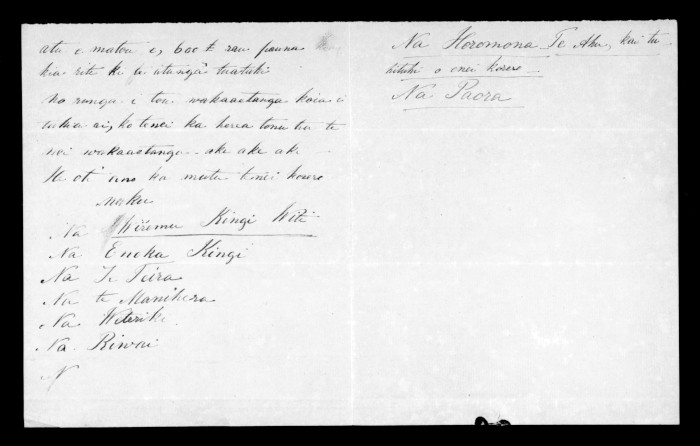 atu e matou e, 600 £ rau pauna
kia rite ki te utunga tuatahi
no runga i tou wakaaetanga koia i
ai, ko tenei ka horea tonu tia te
nei wakaaetanga ake ake ake
Heoti ano ka mutu tenei korero
Naku
Na Wiremu Kingi Witi
Na Enoka Kingi
Na Te Teira
Na te Manihera
Na Wiriki
Na Riwai
N
Na Horomona Te Ahu, kai tu
hituhi o enei korero
Na Paora